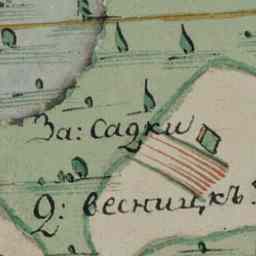 За: Садки
Д: весницкъ: